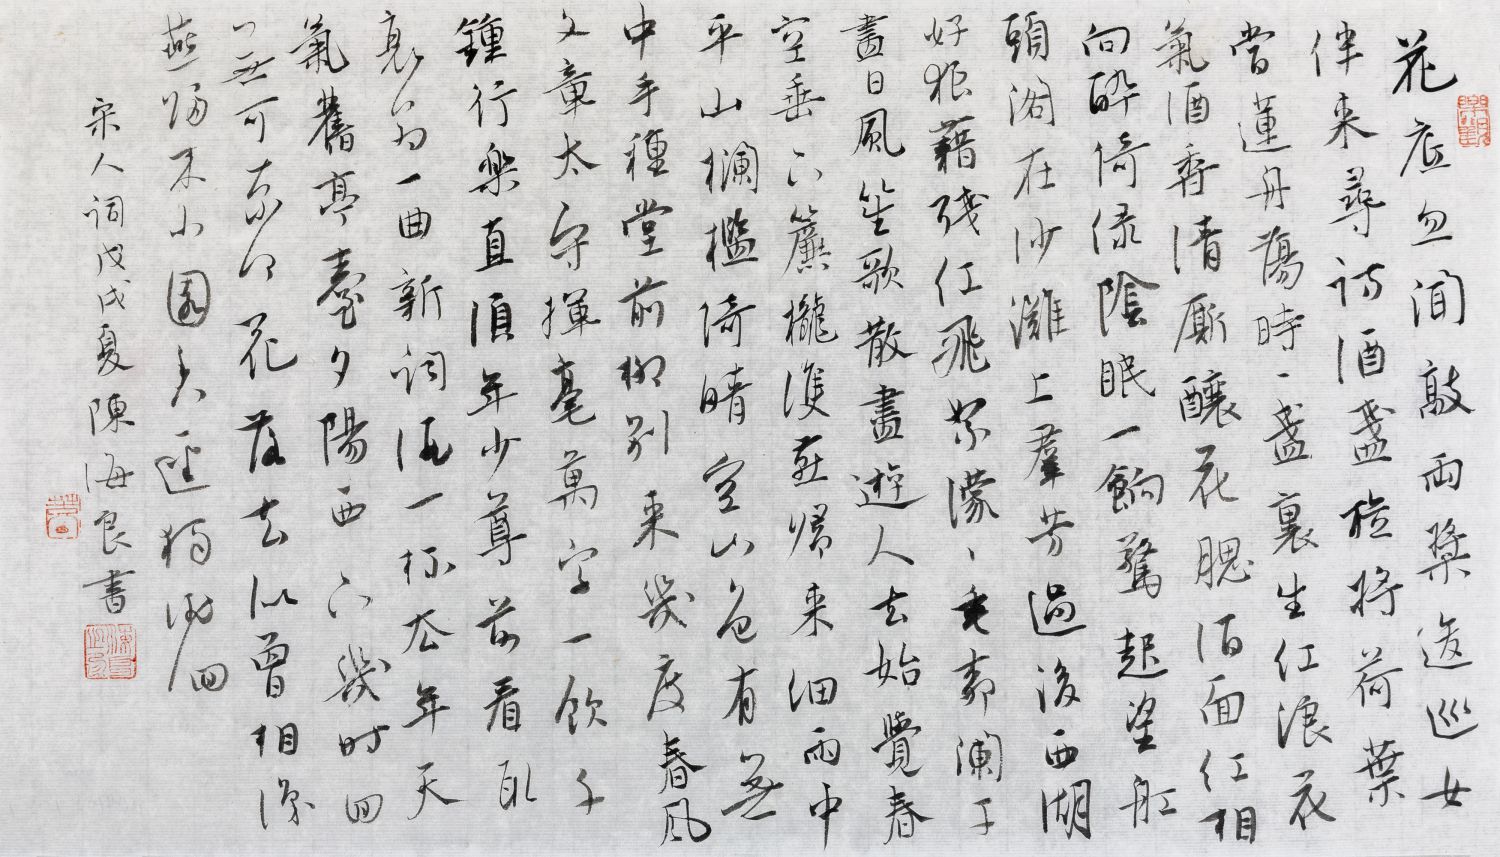 花底忽聞敲兩槳逡巡女
伴來尋訪酒盞旋將荷葉
當蓮舟蕩時、盞裏生紅浪花
氣酒香清厮釀花腮酒面紅相
向醉倚綠陰眠一餉驚起望舡
頭閣在沙灘上羣芳過後西湖
好狼藉殘紅飛絮濛、垂柳闌干
盡日風笙歌散盡遊人去始覺春
空垂下簾櫳雙燕歸來細雨中
平山欄檻倚晴空山色有無
中手種堂前柳別來幾度春風
文章太守揮毫萬字一飲千
鍾行樂直須年少尊前看取
衰翁一曲新詞酒一杯去年天
氣舊亭臺夕陽西下幾時回
無可奈何花落去似曾相識
燕歸來小園香徑獨徘徊
宋人詞戊戌夏陳海良書